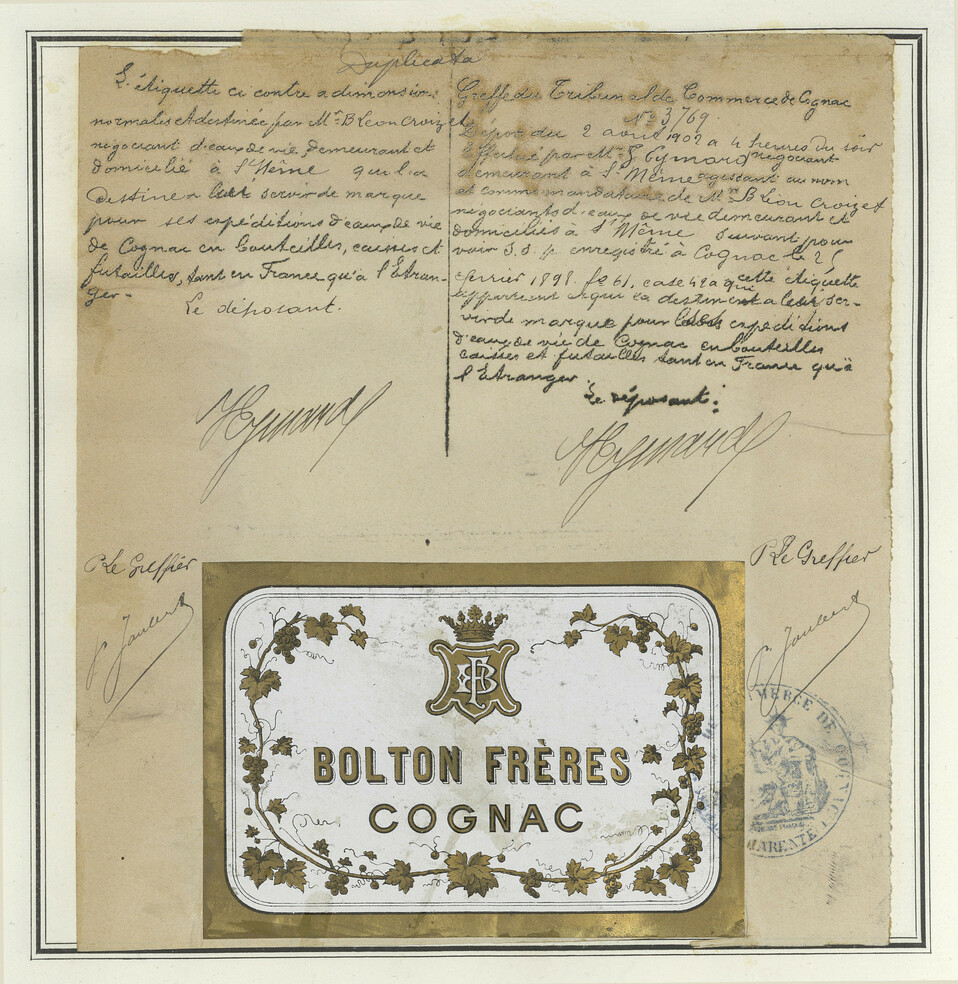 Duplicata
L'étiquette ci contre a dimensions
normales et destinée par Mr B Léon Croizet
négociant d'eaux de vie, demeurant et
domicilié à St Même qui l'a
destinée servir de marque
pour ses expéditions d'eaux de vie
de Cognac en bouteilles, caisses et
futailles, tant en France qu'à l'Etran-
ger.
Le déposant.
Greffe du Tribunal de Commerce de Cognac
No 3769.
Dépôt du 2 août 1902 a 4 heures du soir
Effectué par Mr Eymard négociant
demeurant à St Même agissant au nom
et comme mandataire de Mr B Léon Croizet
négociants d'eaux de vie demeurant et
domiciliés à St Même suivant pou-
voir S.S.p. enregistré à Cognac le 25
février 1898. fo 61. case 42 a qui cette étiquette
appartient et qui la destinent a ser-
vir de marque pour expéditions
d'eaux de vie de Cognac en bouteilles
caisses et futailles tant en France qu'à
l'Etranger.
Le déposant:
Eymard
Eymard
P Le Greffier
P Le Greffier
BOLTON FRÈRES
COGNAC
COMMERCE DE COGNAC
CHARENTE